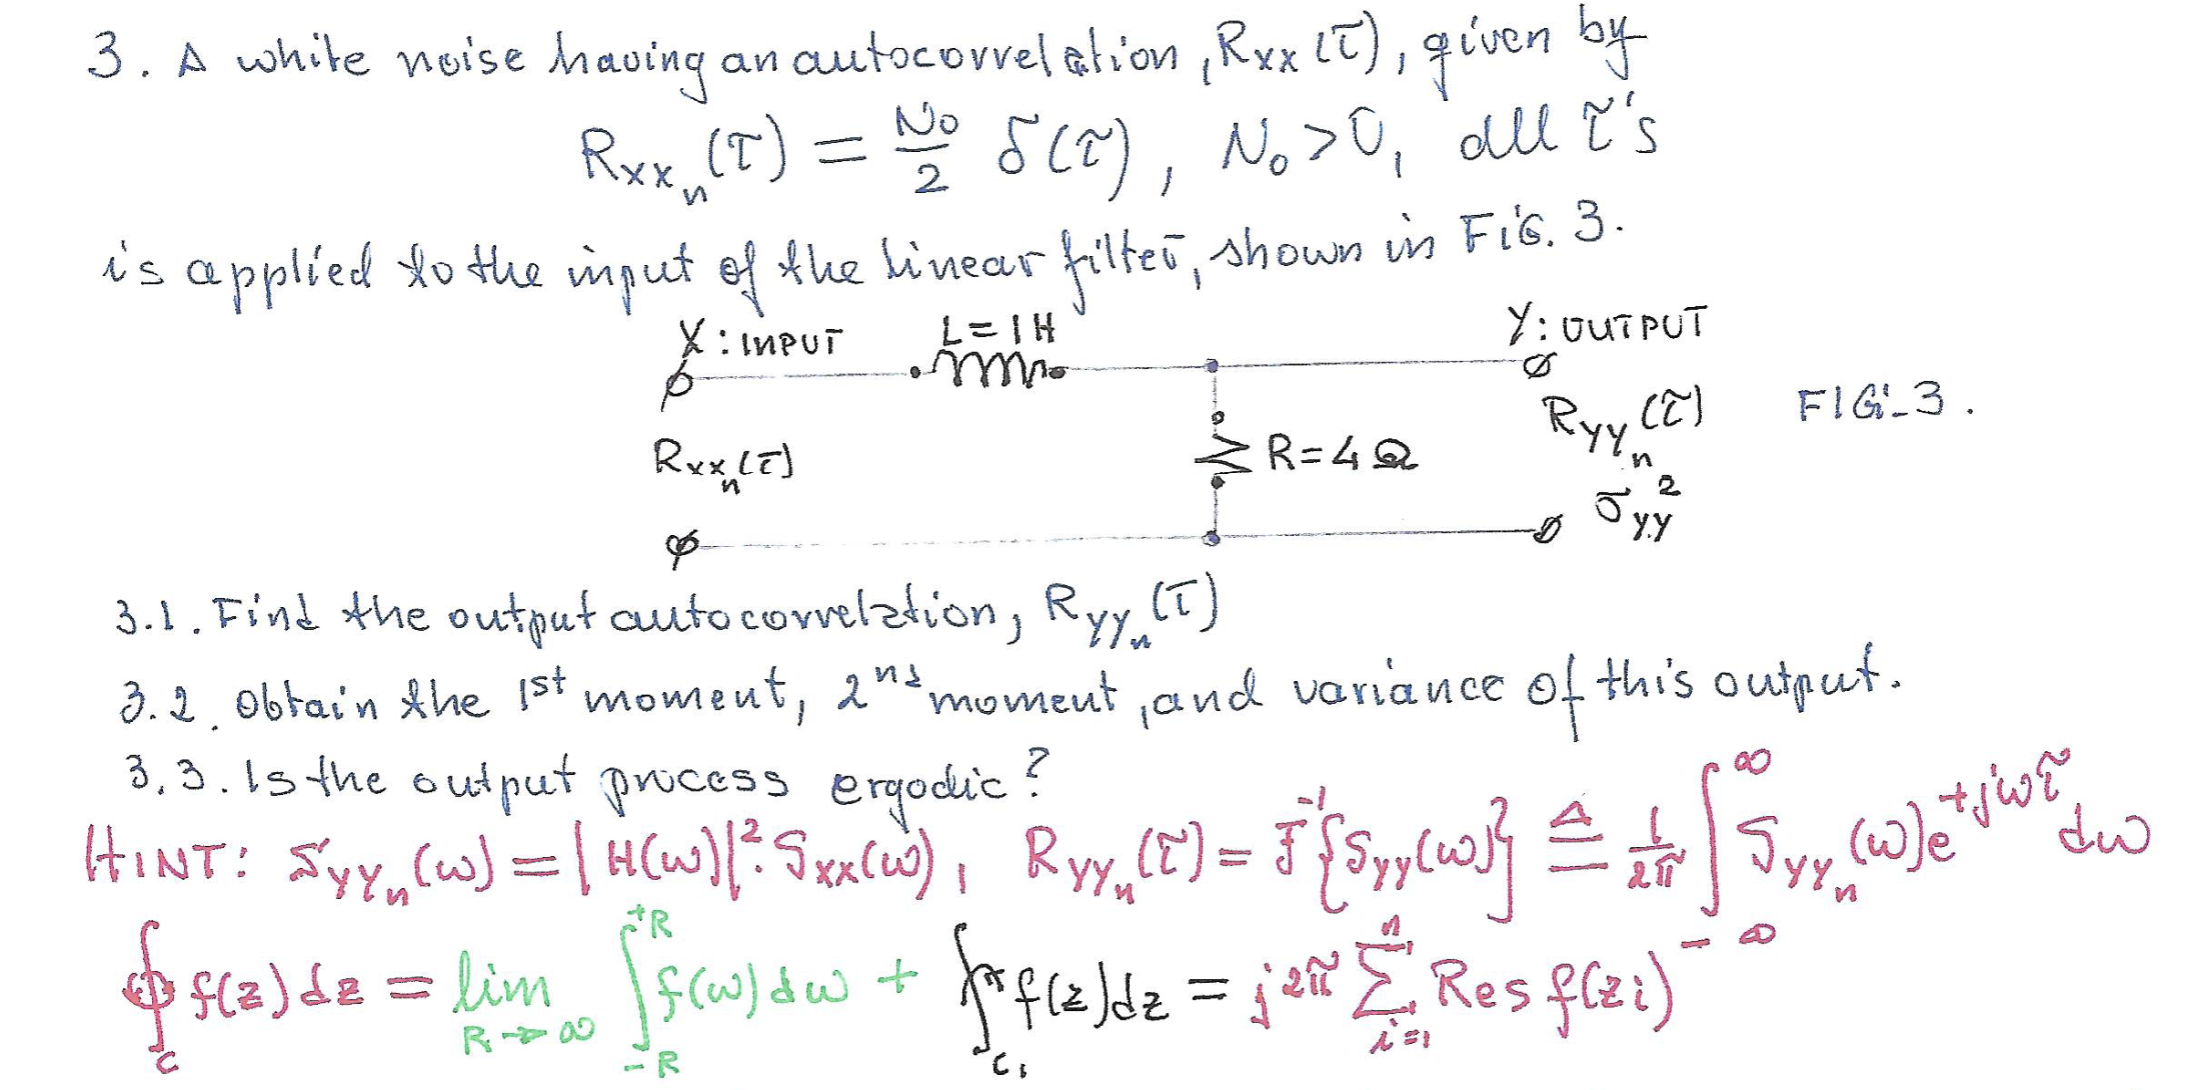 3. A white noise having an autocorrelation, Rxx(τ), given by
Rxxₙ(τ) = N₀/2 δ(τ), N₀>0, all τ's
is applied to the input of the linear filter, shown in FIG. 3.
X: INPUT
L=1H
Y: OUTPUT
Rxxₙ(τ)
R=4Ω
Ryyₙ(τ)
FIG-3.
σ²yy
3.1. Find the output autocorrelation, Ryyₙ(τ)
3.2. Obtain the 1st moment, 2nd moment, and variance of this output.
3.3. Is the output process ergodic?
HINT: Syyₙ(ω) = |H(ω)|²·Sxx(ω), Ryyₙ(τ) = F⁻¹{Syy(ω)} ≜ 1/2π ∫_{-∞}^{∞} Syyₙ(ω)e^{+jωτ} dω
∮_C f(z)dz = lim_{R→∞} ∫_{-R}^{+R} f(ω)dω + ∫_{C₁} f(z)dz = j2π Σ_{i=1}^{n} Res f(zi)